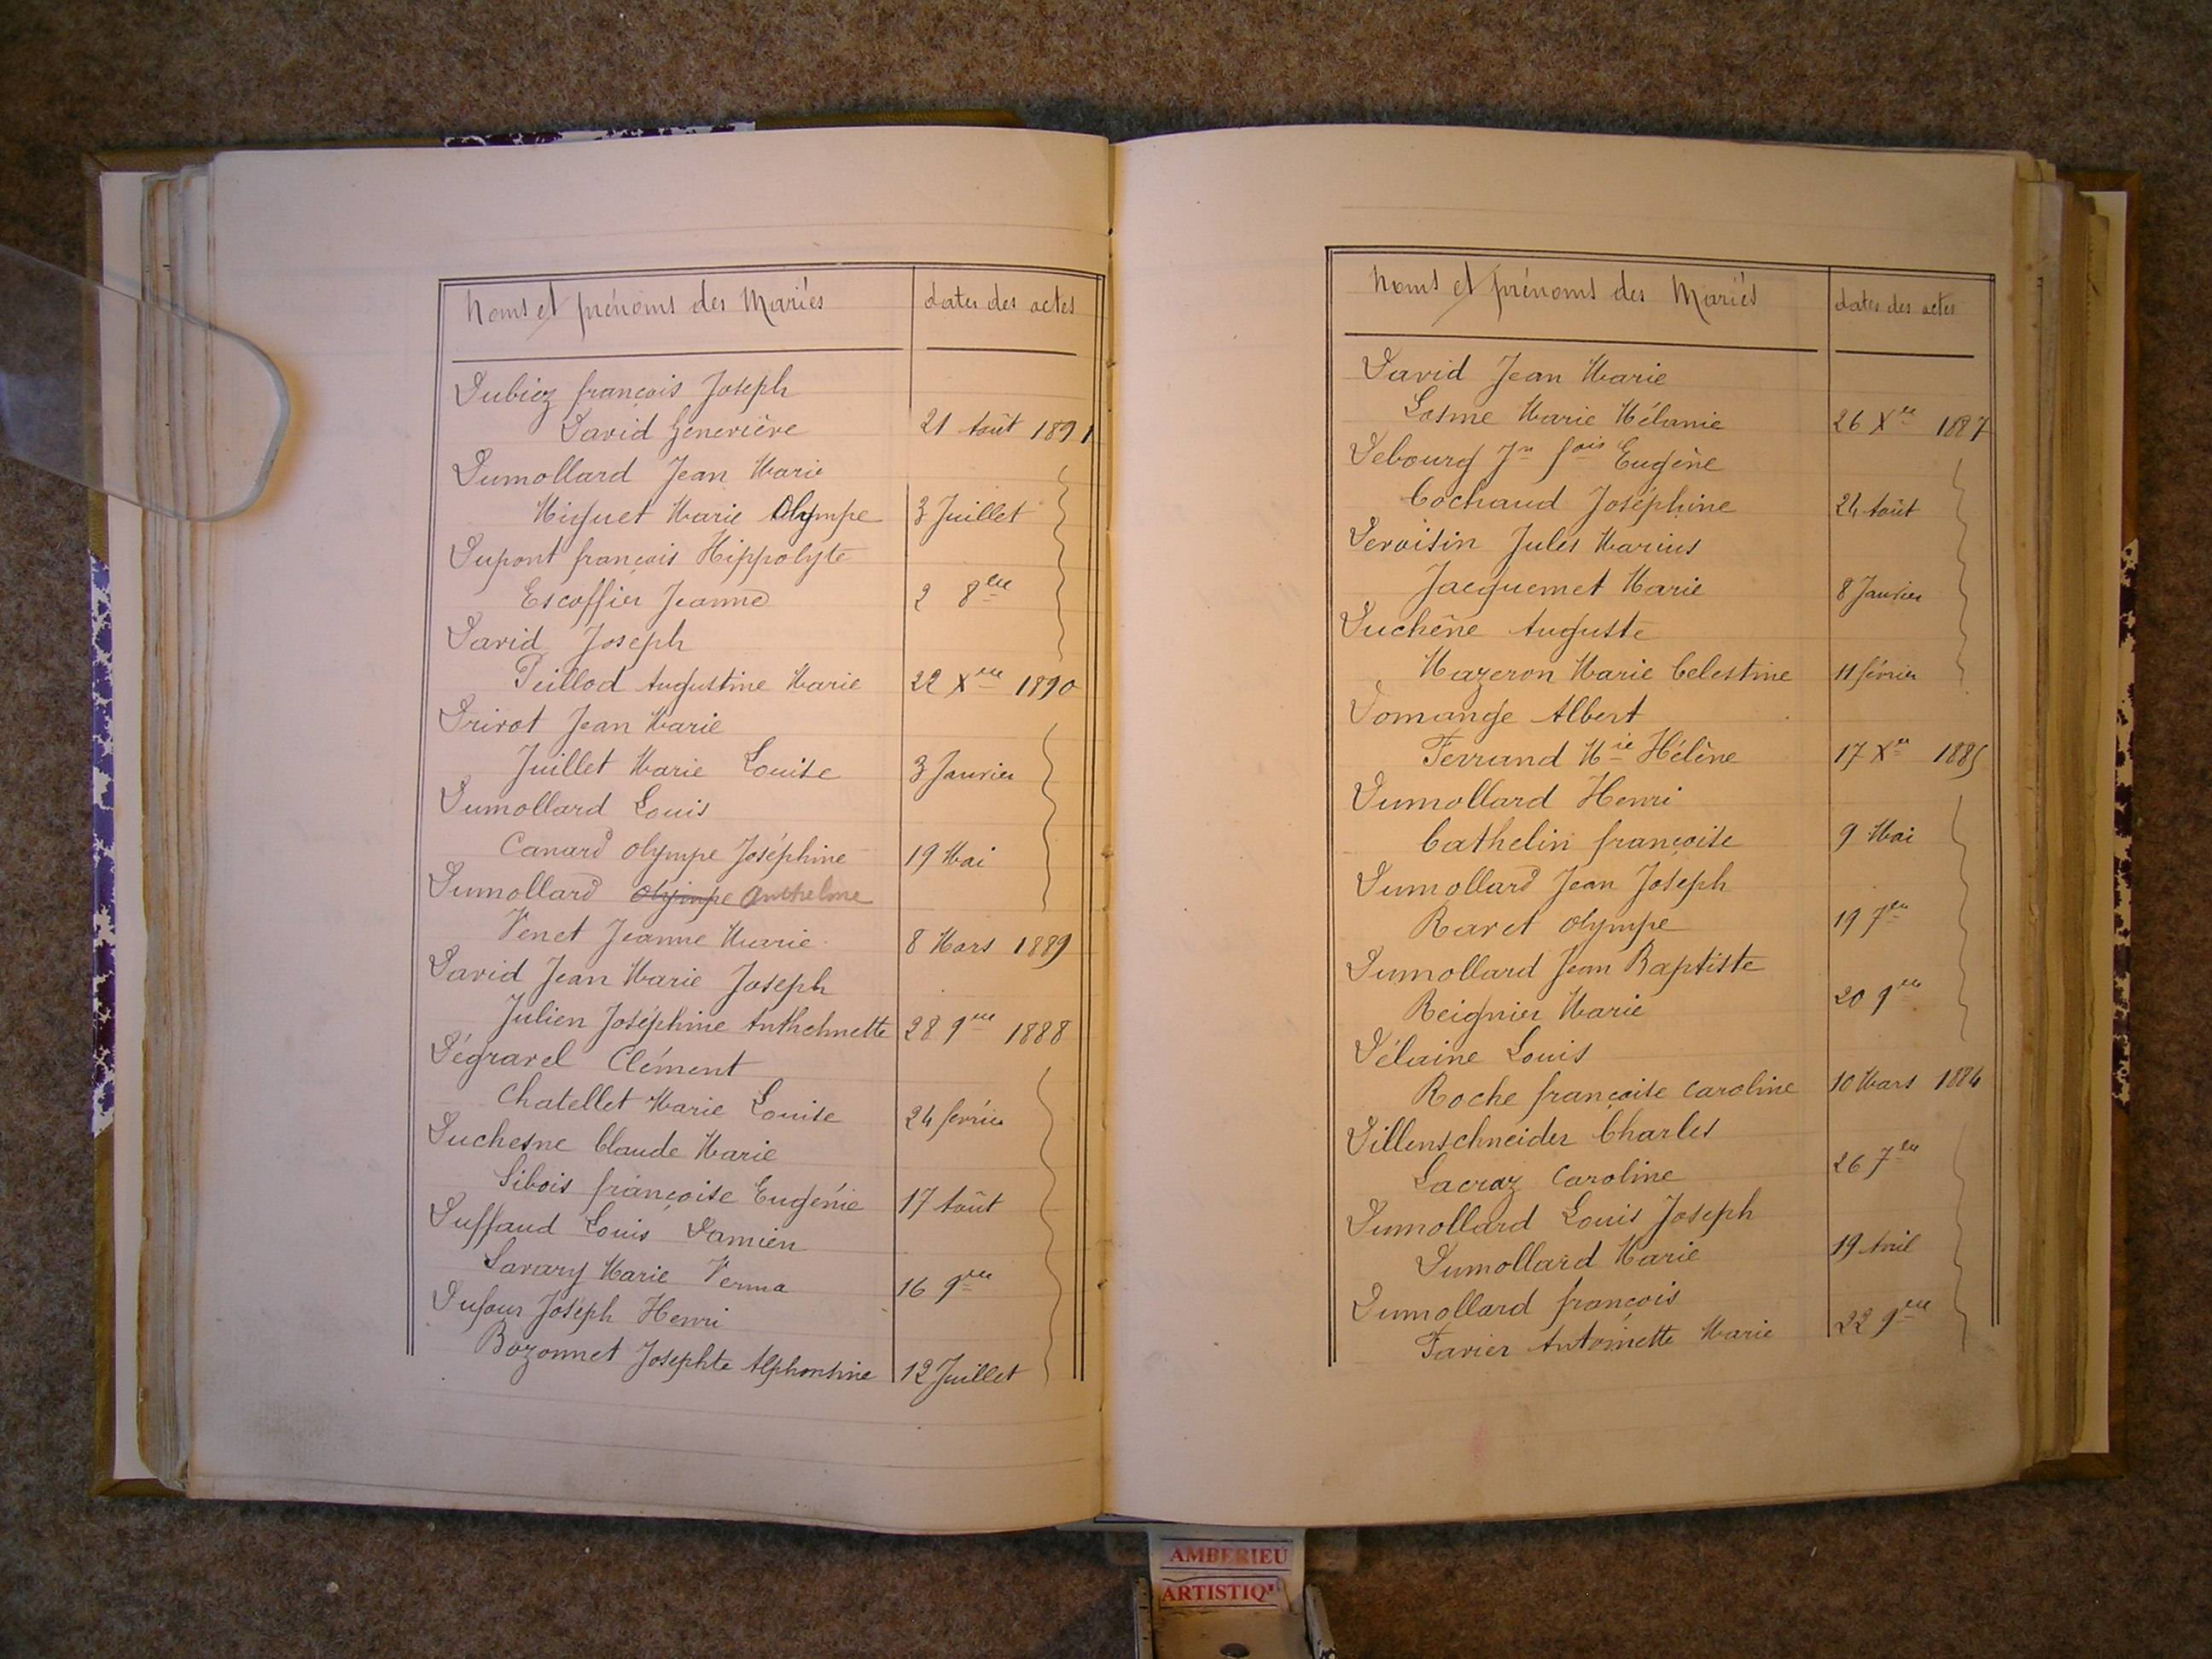 Noms et prénoms des Mariés dates des actes
Dubiez françois Joseph
David Geneviève 21 Août 1891
Dumollard Jean Marie
Miguet Marie Olympe 3 Juillet
Dupont françois Hippolyte
Escoffier Jeanne 2 8bre
David Joseph
Peillod Augustine Marie 22 Xbre 1890
Drivot Jean Marie
Juillet Marie Louise 3 Janvier
Dumollard Louis
Canard Olympe Joséphine 19 Mai
Dumollard Olympe Anthelme
Venet Jeanne Marie 8 Mars 1889
David Jean Marie Joseph
Julien Joséphine Anthelmette 28 9bre 1888
Dégravel Clément
Chatellet Marie Louise 24 février
Duchesne Claude Marie
Sibois françoise Eugénie 17 Août
Duffaud Louis Damien
Savary Marie Verma 16 9bre
Dufour Joseph Henri
Bozonnet Josephte Alphonsine 12 Juillet
Noms et prénoms des Mariés dates des actes
David Jean Marie
Losme Marie Mélanie 26 Xbre 1887
Debourg Jn fois Eugène
Cochaud Joséphine 24 Août
Devoisin Jules Marius
Jacquemet Marie 8 Janvier
Duchêne Auguste
Mazeron Marie Celestine 11 février
Domange Albert
Ferrand Mie Hélène 17 Xbre 1885
Dumollard Henri
Cathelin françoise 9 Mai
Dumollard Jean Joseph
Ravet Olympe 19 7bre
Dumollard Jean Baptiste
Reignier Marie 20 9bre
Délaine Louis
Roche françoise Caroline 10 Mars 1884
Dillenschneider Charles
Lacraz Caroline 26 7bre
Dumollard Louis Joseph
Dumollard Marie 19 Avril
Dumollard françois
Favier Antoinette Marie 22 9bre
AMBERIEU
ARTISTIQ